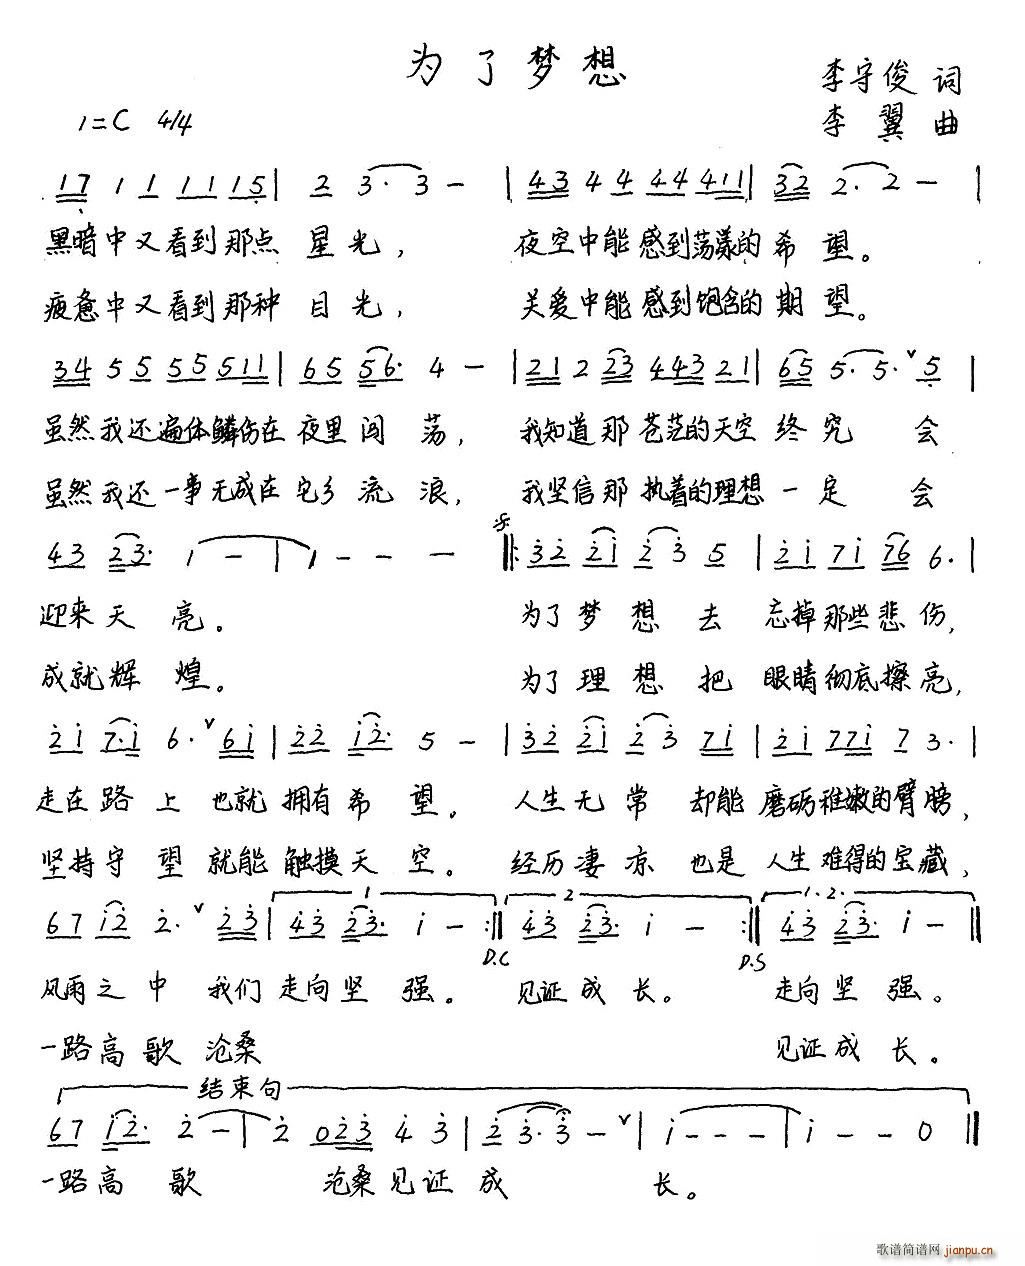 为了梦想
李守俊 词
1=C 4/4
李翼 曲
1 7 1 1 1 1 1 5 | 2 3· 3 - | 4 3 4 4 4 4 4 1 1 | 3 2 2· 2 - |
黑暗中又看到那点 星光, 夜空中能感到荡漾的希望。
疲惫中又看到那种 目光, 关爱中能感到饱含的期望。
3 4 5 5 5 5 5 1 1 | 6 5 5 6· 4 - | 2 1 2 2 3 4 4 3 2 1 | 6 5 5· 5· ∨ 5 |
虽然我还遍体鳞伤在 夜里闯荡, 我知道那苍茫的天空 终究会
虽然我还一事无成在 它乡流浪, 我坚信那执着的理想 一定会
4 3 2 3· 1 - | 1 - - - ‖: 3 2 2 1 2 3 5 | 2 1 7 1 7 6 6· |
迎来天亮。 为了梦想去 忘掉那些悲伤,
成就辉煌。 为了理想把 眼睛彻底擦亮,
2 1 7· 1 6· ∨ 6 1 | 2 2 1 2· 5 - | 3 2 2 1 2 3 7 1 | 2 1 7 7 1 7 3· |
走在路上 也就 拥有希望。 人生无常 却能 磨砺稚嫩的臂膀,
坚持守望 就能 触摸天空。 经历凄凉 也是 人生难得的宝藏,
1 2 1·2·
6 7 1 2 2· ∨ 2 3 | 4 3 2 3· 1 - :‖ 4 3 2 3· 1 - :‖ 4 3 2 3· 1 - ‖
D.C D.S
风雨之中 我们 走向坚强。 见证成长。 走向坚强。
一路高歌 沧桑 见证成长。
结束句
6 7 1 2· 2 - | 2 0 2 3 4 3 | 2 3· 3 - ∨ | 1 - - - | 1 - - 0 ‖
一路高歌 沧桑见证成 长。
歌谱简谱网 jianpu.cn